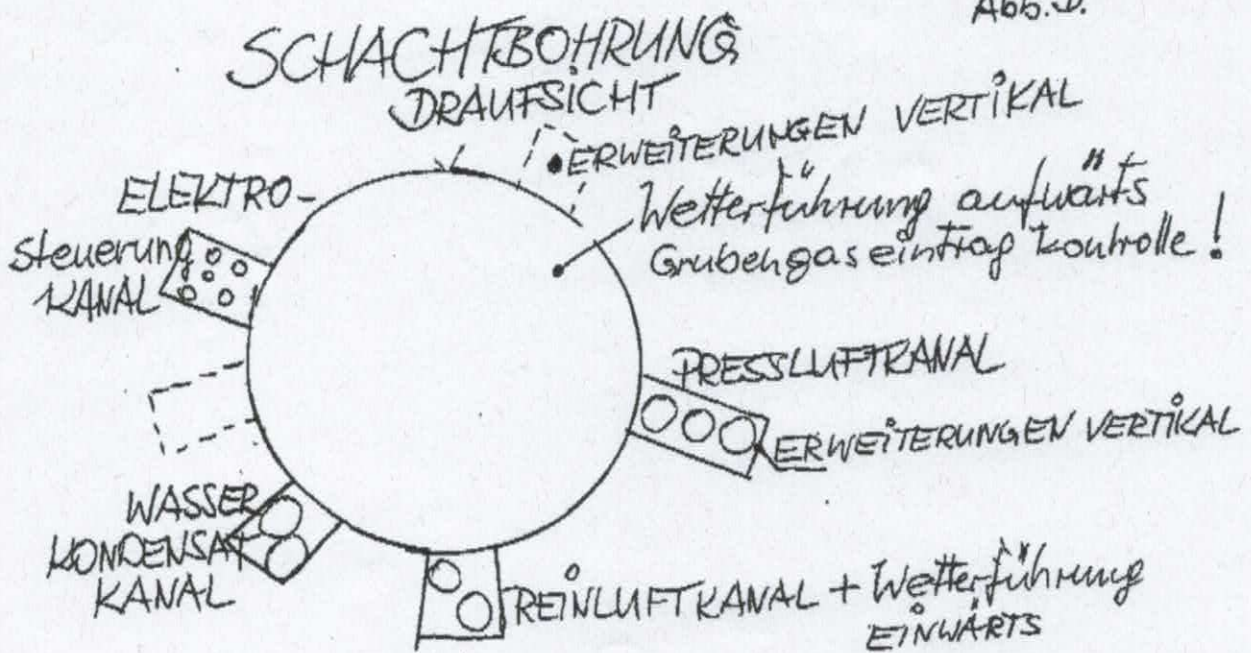 Abb.
SCHACHTBOHRUNG
DRAUFSICHT
• ERWEITERUNGEN VERTIKAL
Wetterführung aufwärts
Grubengaseintrag kontrolle!
ELEKTRO-
Steuerung
KANAL
PRESSLUFTKANAL
ERWEITERUNGEN VERTIKAL
WASSER
KONDENSAT
KANAL
REINLUFTKANAL + Wetterführung
EINWÄRTS